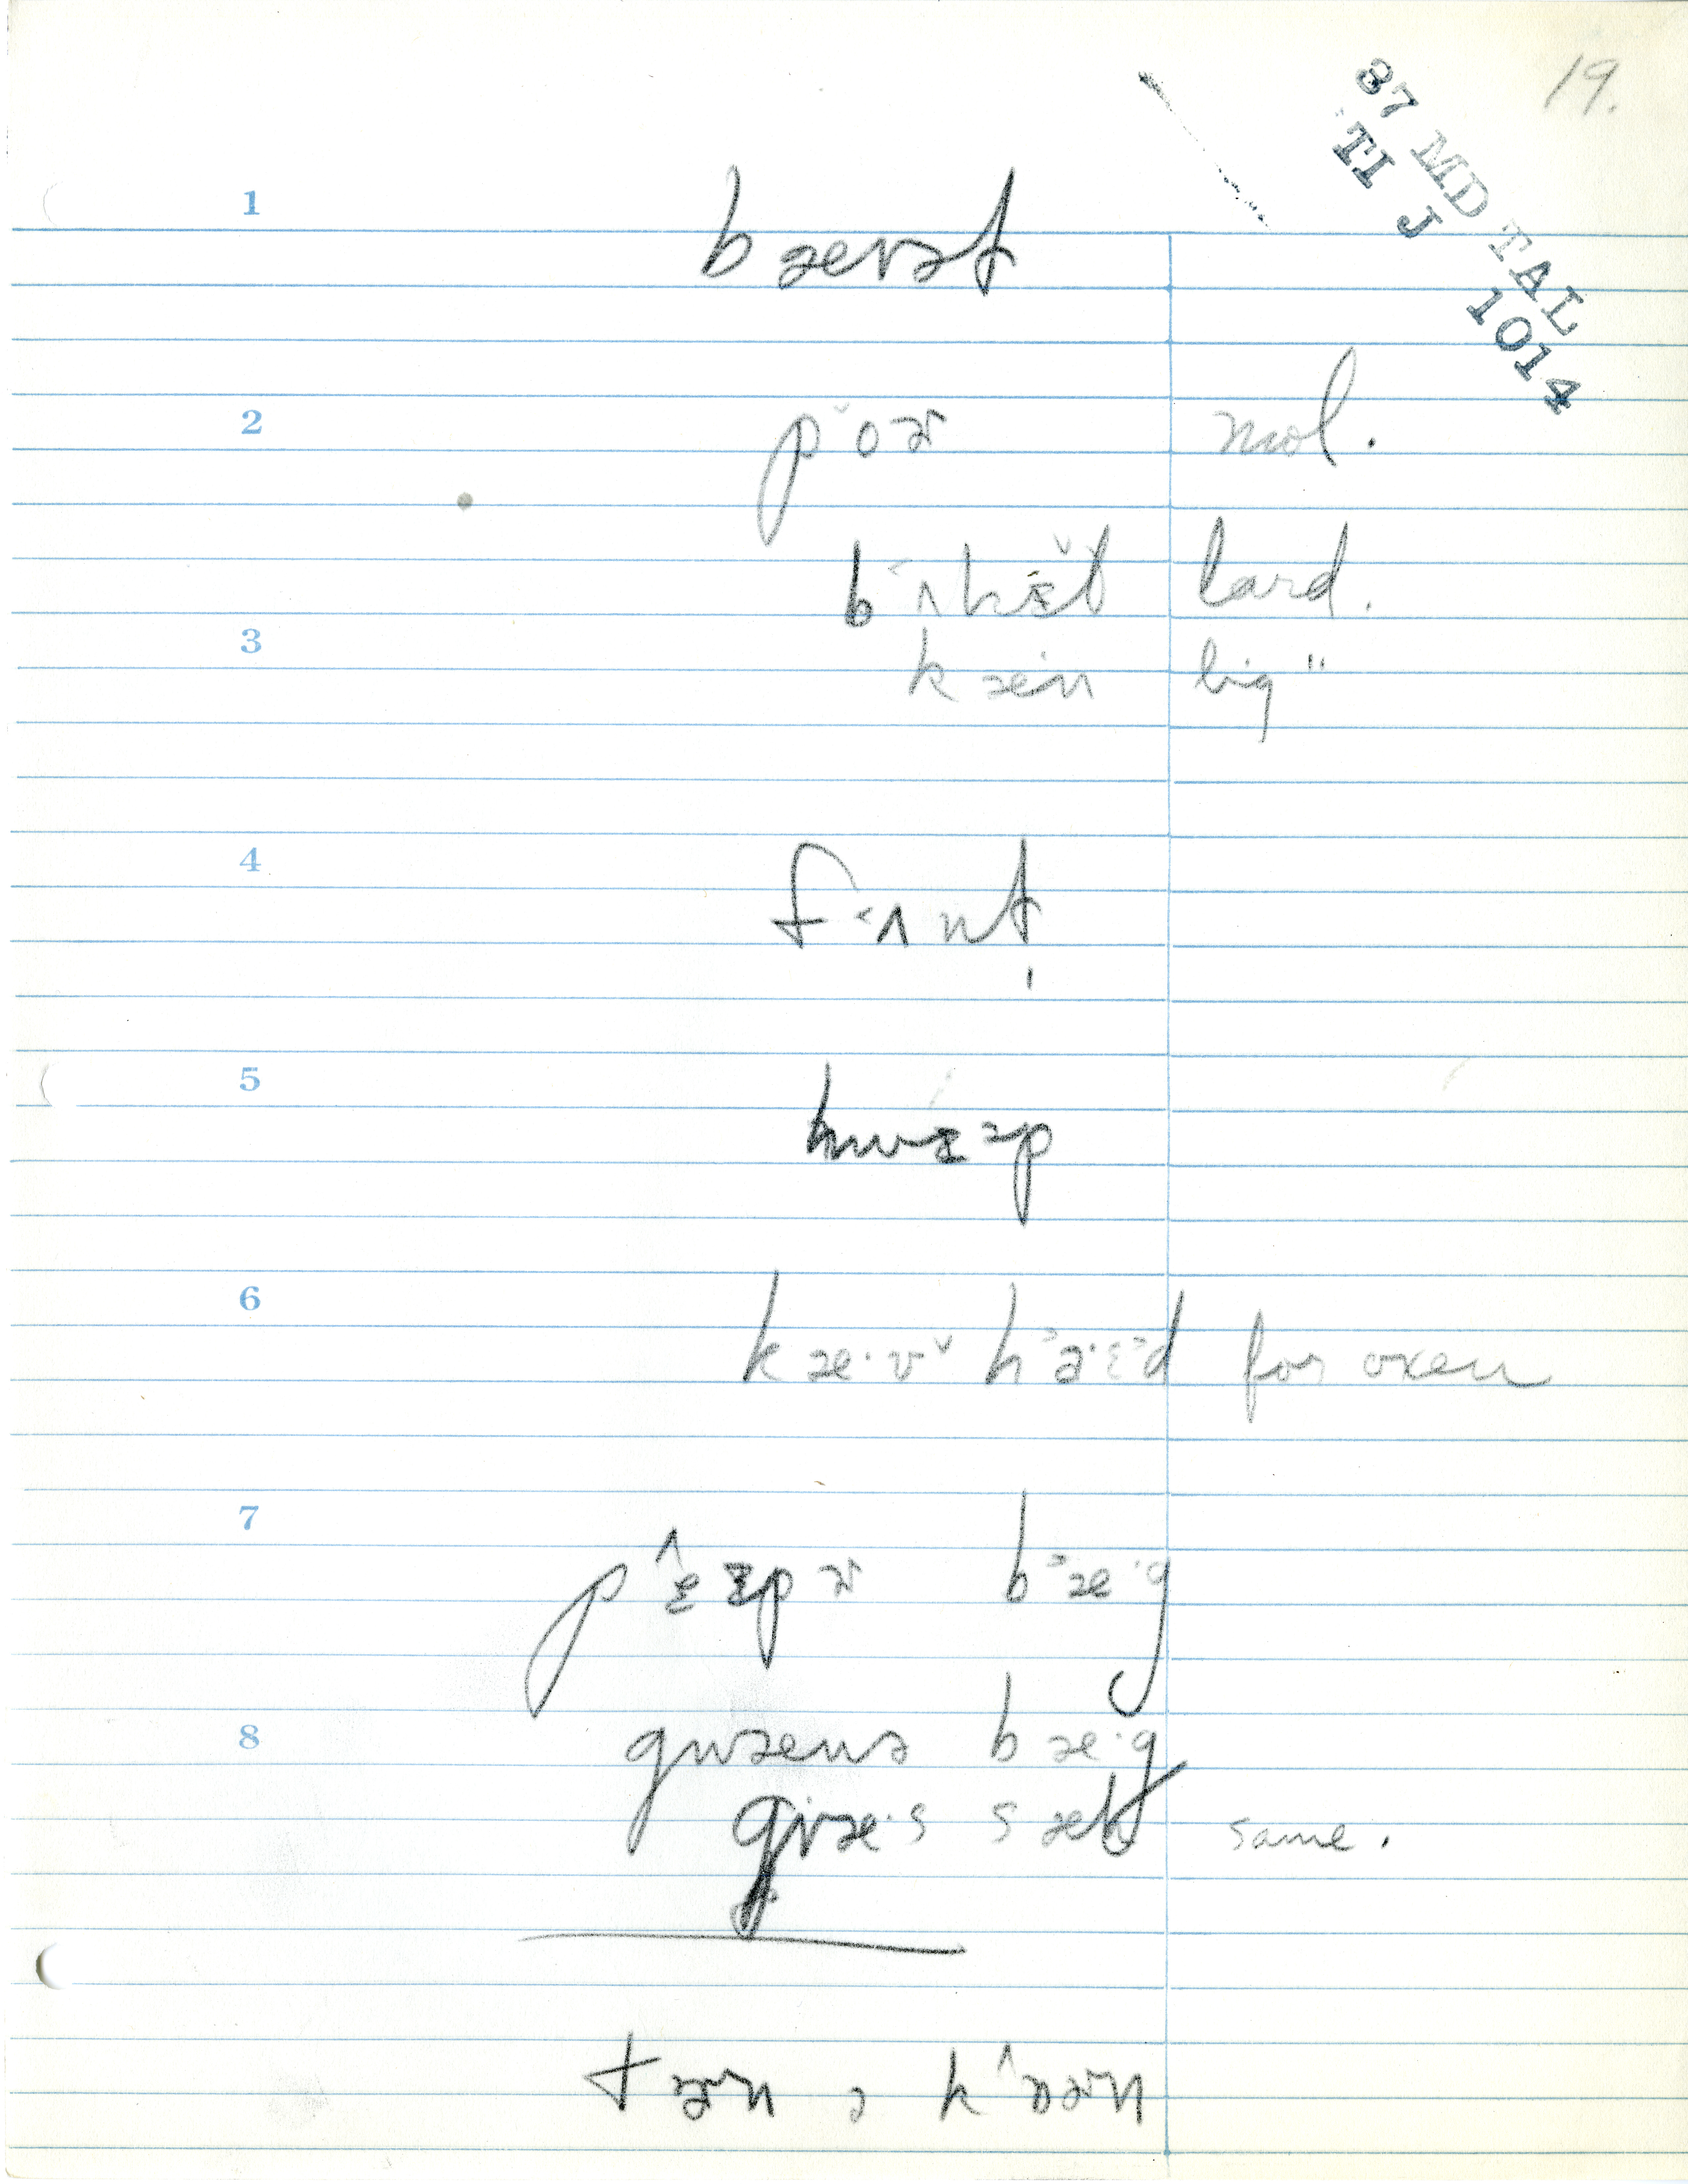 19.
87 MD TAL
TI J 1014
1
bæɪət
2 poɚ mol.
bʌkɪt lard.
3 kæn big "
4 fʌnt
5 hwɪəp
6 kæ·ɪ hə·ɛd for oxen
7 pɛɪpɚ bæ·g
8 gwænə bæ·g
græ·s sæk same.
tɚn ə kɒɚn